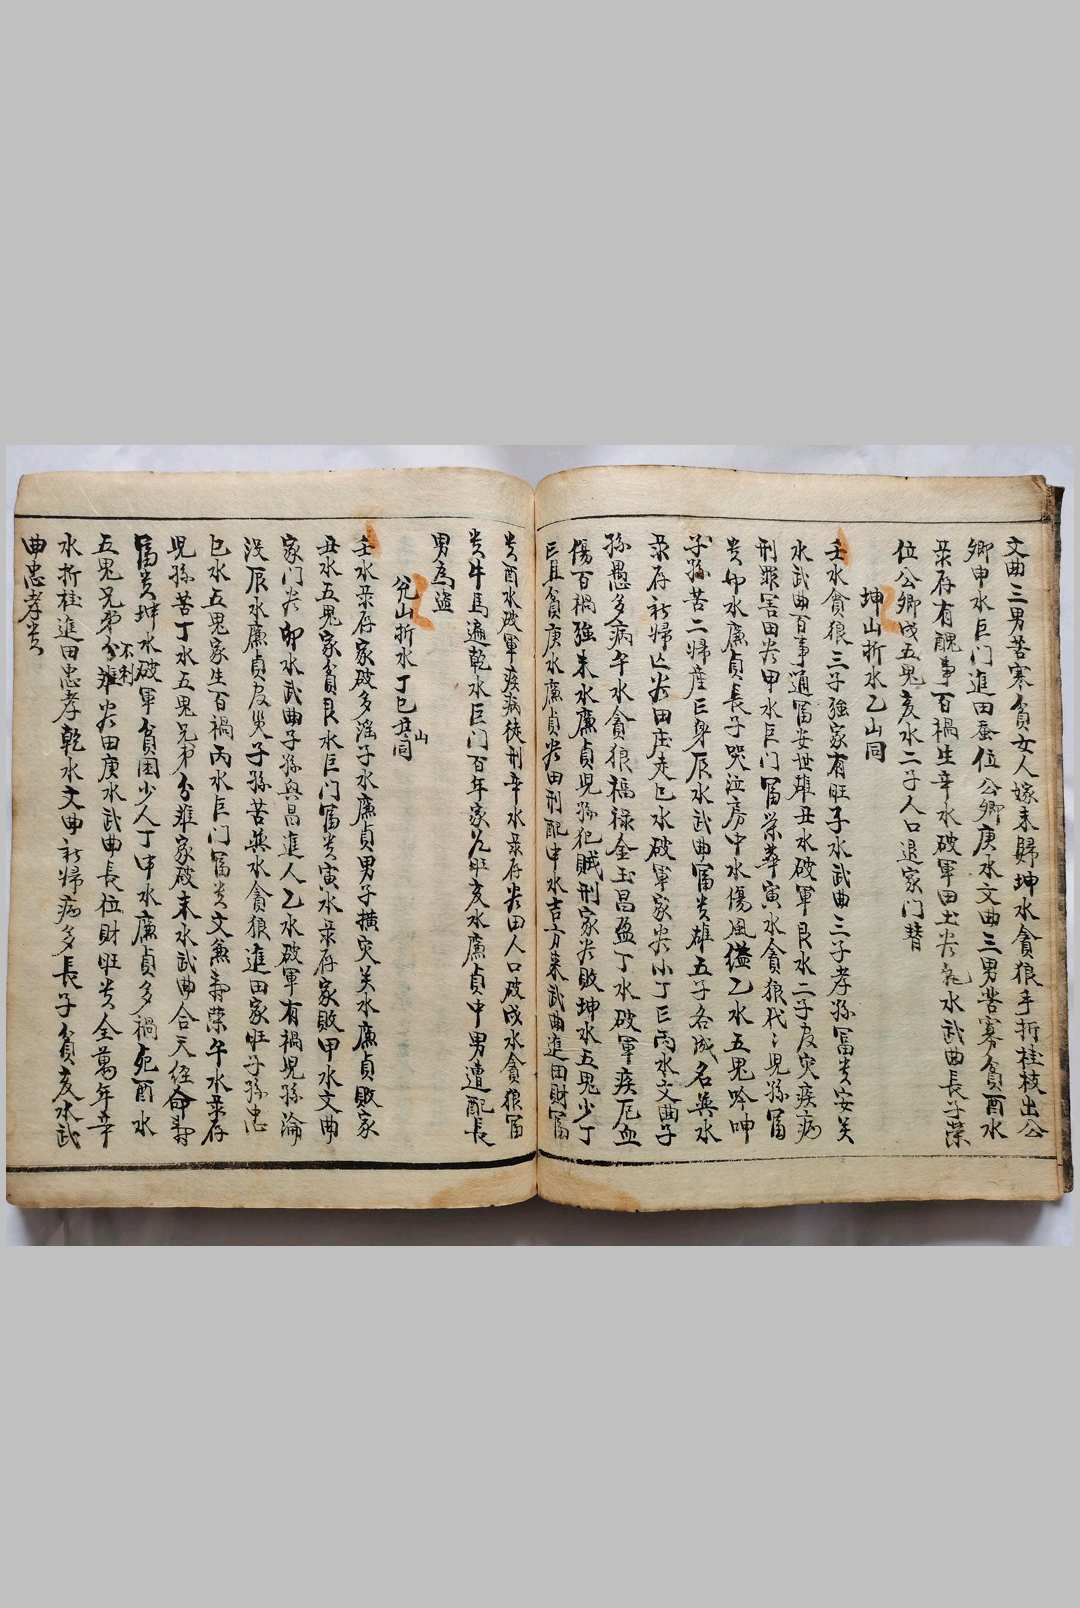 文曲三男苦寒貧女人嫁未歸坤水貪狼手折桂枝出公
卿申水巨门進田蚕位公卿庚水文曲三男苦寒貧酉水
彔存有醜事百禍生辛水破軍田土尖乾水武曲長子榮
位公卿戌五鬼亥水二子人口退家门替
坤山折水乙山同
壬水貪狼三子強家有旺子水武曲三子孝孫冨贵安癸
水武曲百事通冨贵世雄丑水破軍艮水二子及灾疾病
刑罪害田尖甲水巨门冨荣華寅水貪狼代〻児孫冨
贵卯水廉貞長子哭泣房中水傷風縊乙水五鬼吟呻
子孫苦二婦産亡身辰水武曲冨贵雄五子各成名巽水
彔存社歸亾尖田庄走巳水破軍家尖小丁亡丙水文曲子
孫愚多病午水貪狼福禄金玉昌盈丁水破軍疾厄血
傷百禍強未水廉貞児孫犯賊刑家尖敗坤水五鬼少丁
亡且貧庚水廉貞尖田刑配申水吉方来武曲進田財冨
贵酉水破軍疾病徒刑辛水彔存尖田人口破戌水貪狼冨
贵牛馬遍乾水巨门百年家久旺亥水廉貞中男遭配長
男為盗
兊山折水丁巳丑山同
壬水彔存家破多淫子水廉貞男子横灾癸水廉貞敗家
丑水五鬼家貧艮水巨门冨贵寅水彔存家敗甲水文曲
家门尖卯水武曲子孫興昌進人乙水破軍有禍児孫淪
没辰水廉貞及災子孫苦巽水貪狼進田家旺子孫忠
巳水五鬼家生百禍丙水巨门冨贵文兼壽榮午水彔存
児孫苦丁水五鬼兄弟分離家破未水武曲合天経命壽
冨贵坤水破軍貧困少人丁申水廉貞多禍死酉水
五鬼兄弟分離不利尖田庚水武曲長位財旺贵全萬年辛
水折桂進田忠孝乾水文曲社歸病多長子貧亥水武
曲忠孝贵